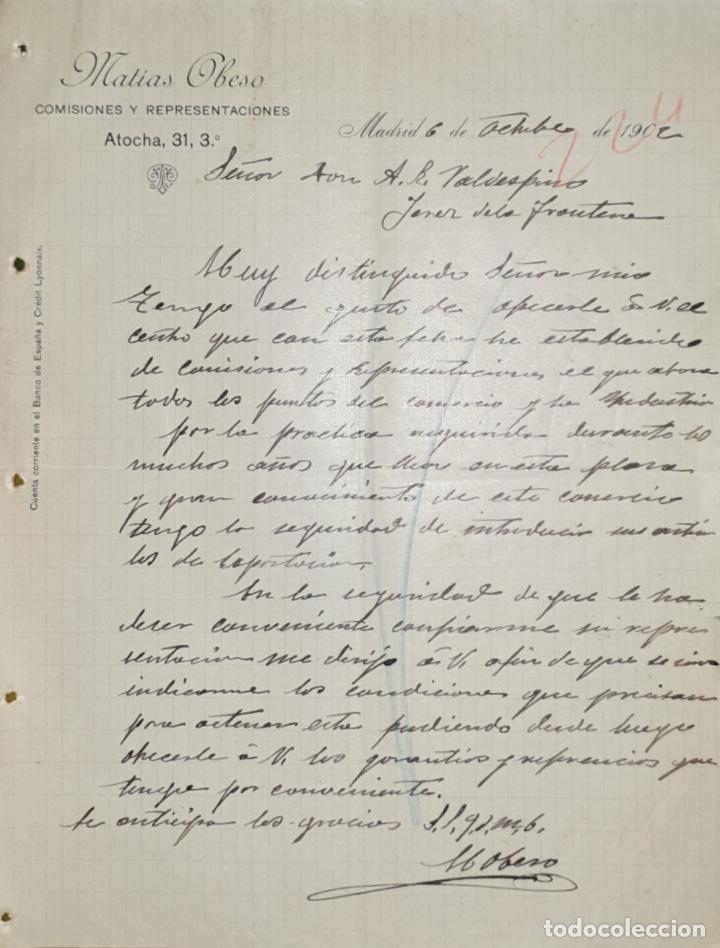 Matias Obeso
COMISIONES Y REPRESENTACIONES
Atocha, 31, 3.º
Madrid 6 de Octubre de 1902
Señor Don A. R. Valdespino
Jerez de la Frontera
Muy distinguido Señor mio
Tengo el gusto de ofrecerle á V. el
centro que con esta fecha he establecido
de comisiones y representaciones el que abora
todos los puntos del comercio y la Yndustria
por la practica requirida durante los
muchos años que llevo en esta plaza
y gran conocimiento de este comercio
tengo la seguridad de introducir sus articu
los de esportacion.
En la seguridad de que le ha
deser conveniente confiarme su repre
sentacion me dirijo á V. afin de que se sirva
indicarme las condiciones que precisan
para octener esta pudiendo desde luego
ofrecerle á V. las garantias y referencias que
tenga por conveniente.
le anticipa las gracias S. S. q. s. m. b.
M Obeso
Cuenta corriente en el Banco de España y Crédit Lyonnais.
todocoleccion